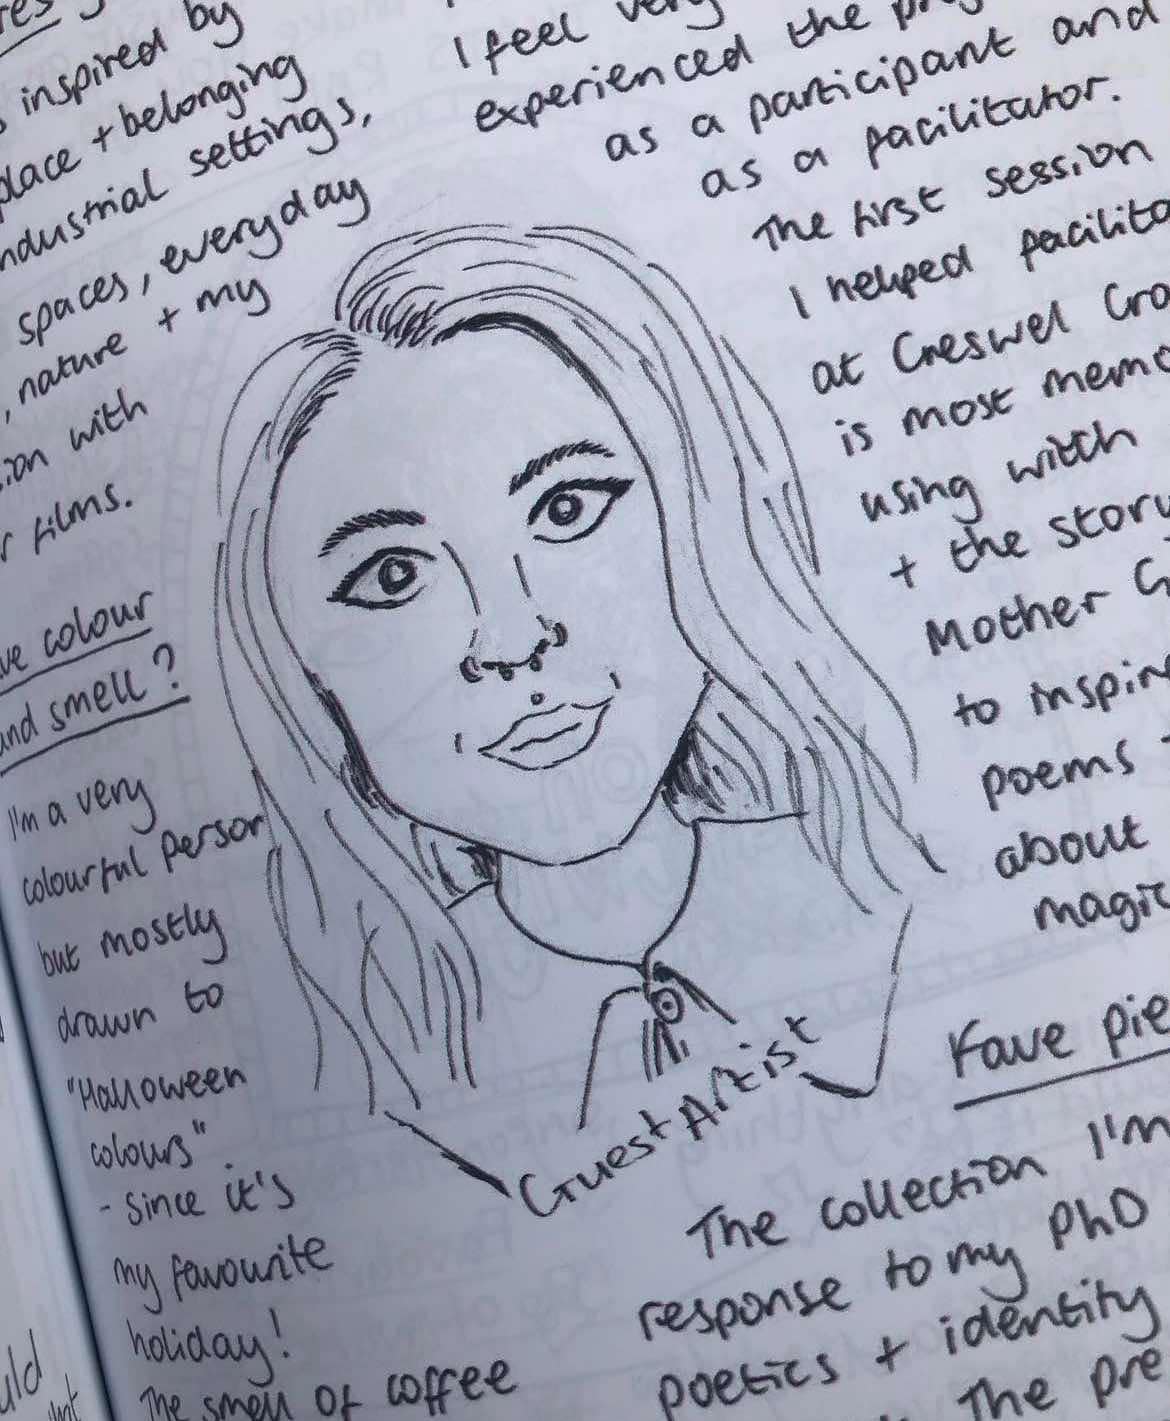 inspired by
place + belonging
industrial settings,
spaces, everyday
, nature + my
with
films.
colour
and smell?
I'm a very
colourful person
but mostly
drawn to
"Halloween
colours"
- Since it's
my favourite
holiday!
The smell of coffee
I feel very
experienced the
as a participant and
as a facilitator.
The first session
I helped
at Creswel
is most
using witch
+ the story
Mother
to
poems
about
magic
Guest Artist
Fave
The collection I'm
response to my PhD
poetics + identity
The